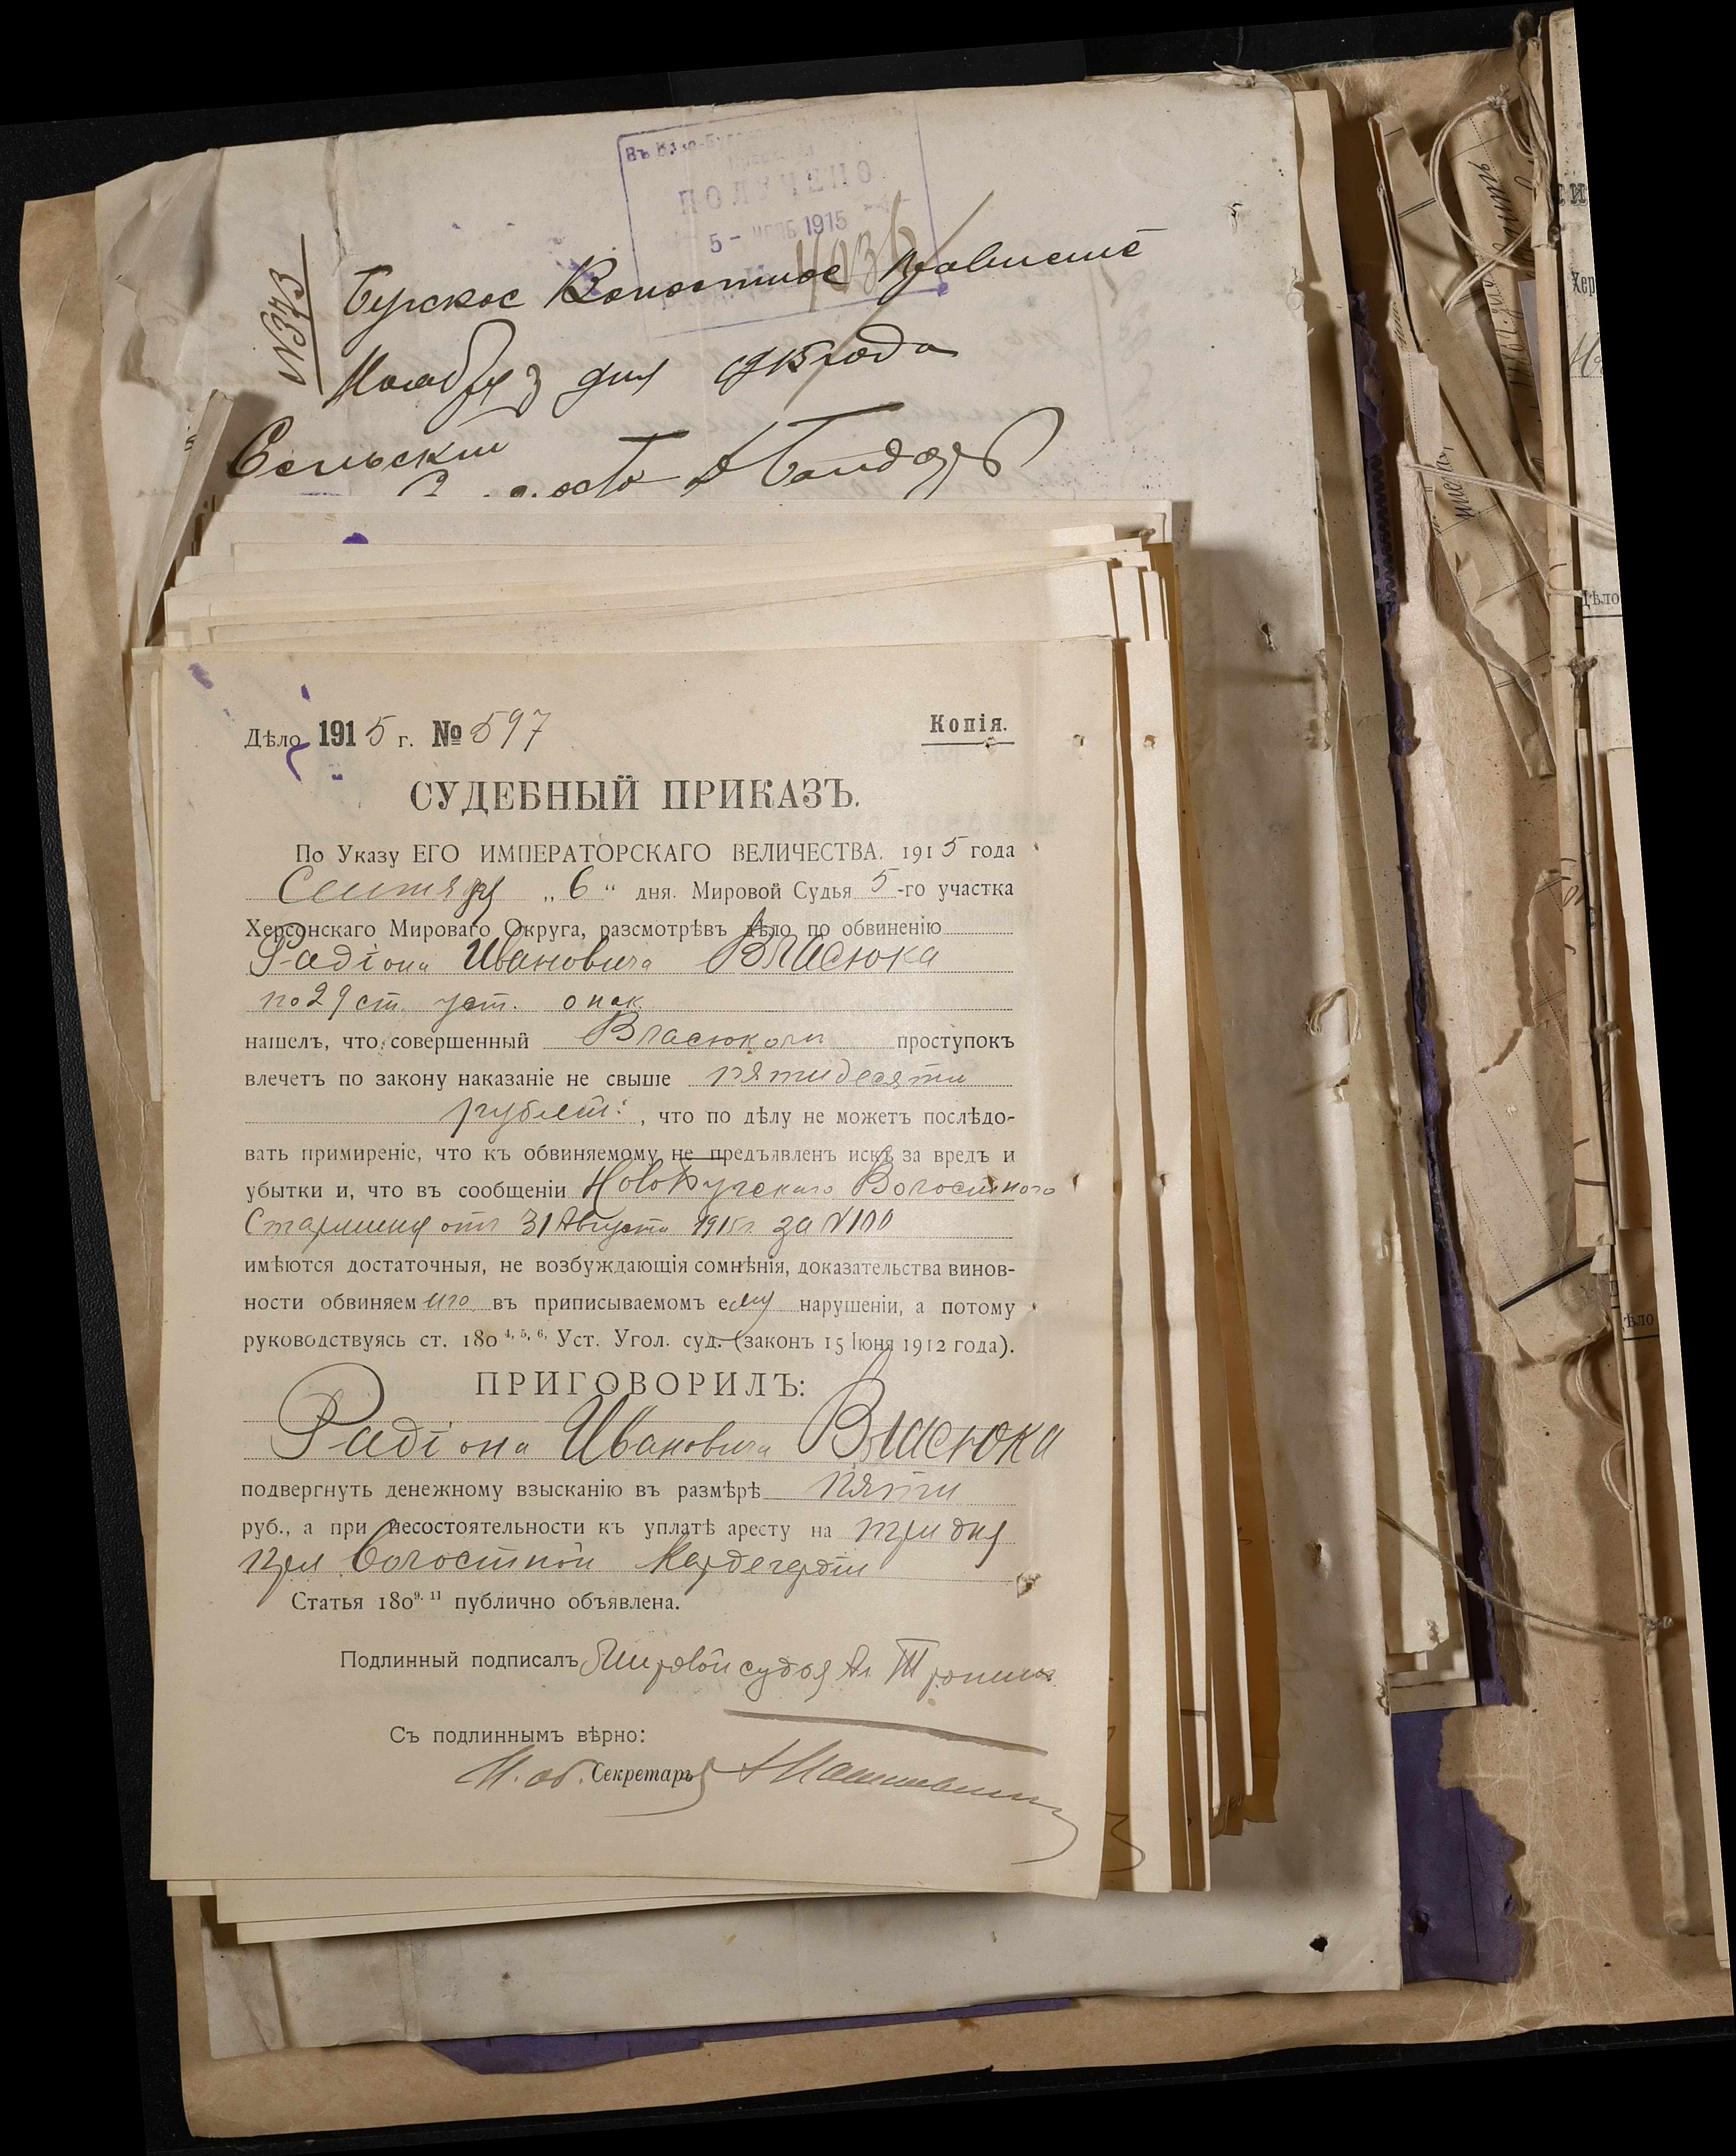 ПОЛУЧЕНО
5 - НОЯБ 1915
№373
Бугское Волостное Правление
Ноября 3 дня 1915 года
Сельский
Дѣло 1915 г. № 597
Копія.
СУДЕБНЫЙ ПРИКАЗЪ.
По Указу ЕГО ИМПЕРАТОРСКАГО ВЕЛИЧЕСТВА. 1915 года
Сентября „6“ дня. Мировой Судья 5-го участка
Херсонскаго Мирового Округа, разсмотрѣвъ дѣло по обвиненію
Радіона Ивановича Власюка
по 29 ст. уст. о нак.
нашелъ, что совершенный Власюкомъ проступокъ
влечетъ по закону наказаніе не свыше пятидесяти
рублей: , что по дѣлу не можетъ послѣдо-
вать примиреніе, что къ обвиняемому не предъявленъ искъ за вредъ и
убытки и, что въ сообщеніи НовоБугскаго Волостного
Старшины отъ 31 Августа 1915 г. за №100
имѣются достаточныя, не возбуждающія сомнѣнія, доказательства винов-
ности обвиняемаго въ приписываемомъ ему нарушеніи, а потому
руководствуясь ст. 180 4, 5, 6, Уст. Угол. суд. (законъ 15 Іюня 1912 года).
ПРИГОВОРИЛЪ:
Радіона Ивановича Власюка
подвергнуть денежному взысканію въ размѣрѣ пяти
руб., а при несостоятельности къ уплатѣ аресту на три дня
при волостной Кордегардіи
Статья 180 9. 11 публично объявлена.
Подлинный подписалъ Мировой судья Ал.
Съ подлиннымъ вѣрно:
И. об. Секретаря